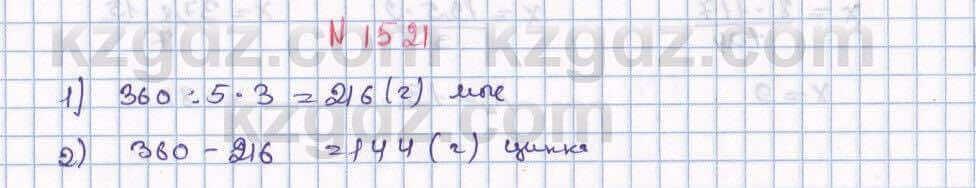 N 1521
1) 360 : 5 · 3 = 216 (г) меди
2) 360 - 216 = 144 (г) цинка
kzgdz.com kzgdz.com
kzgdz.com